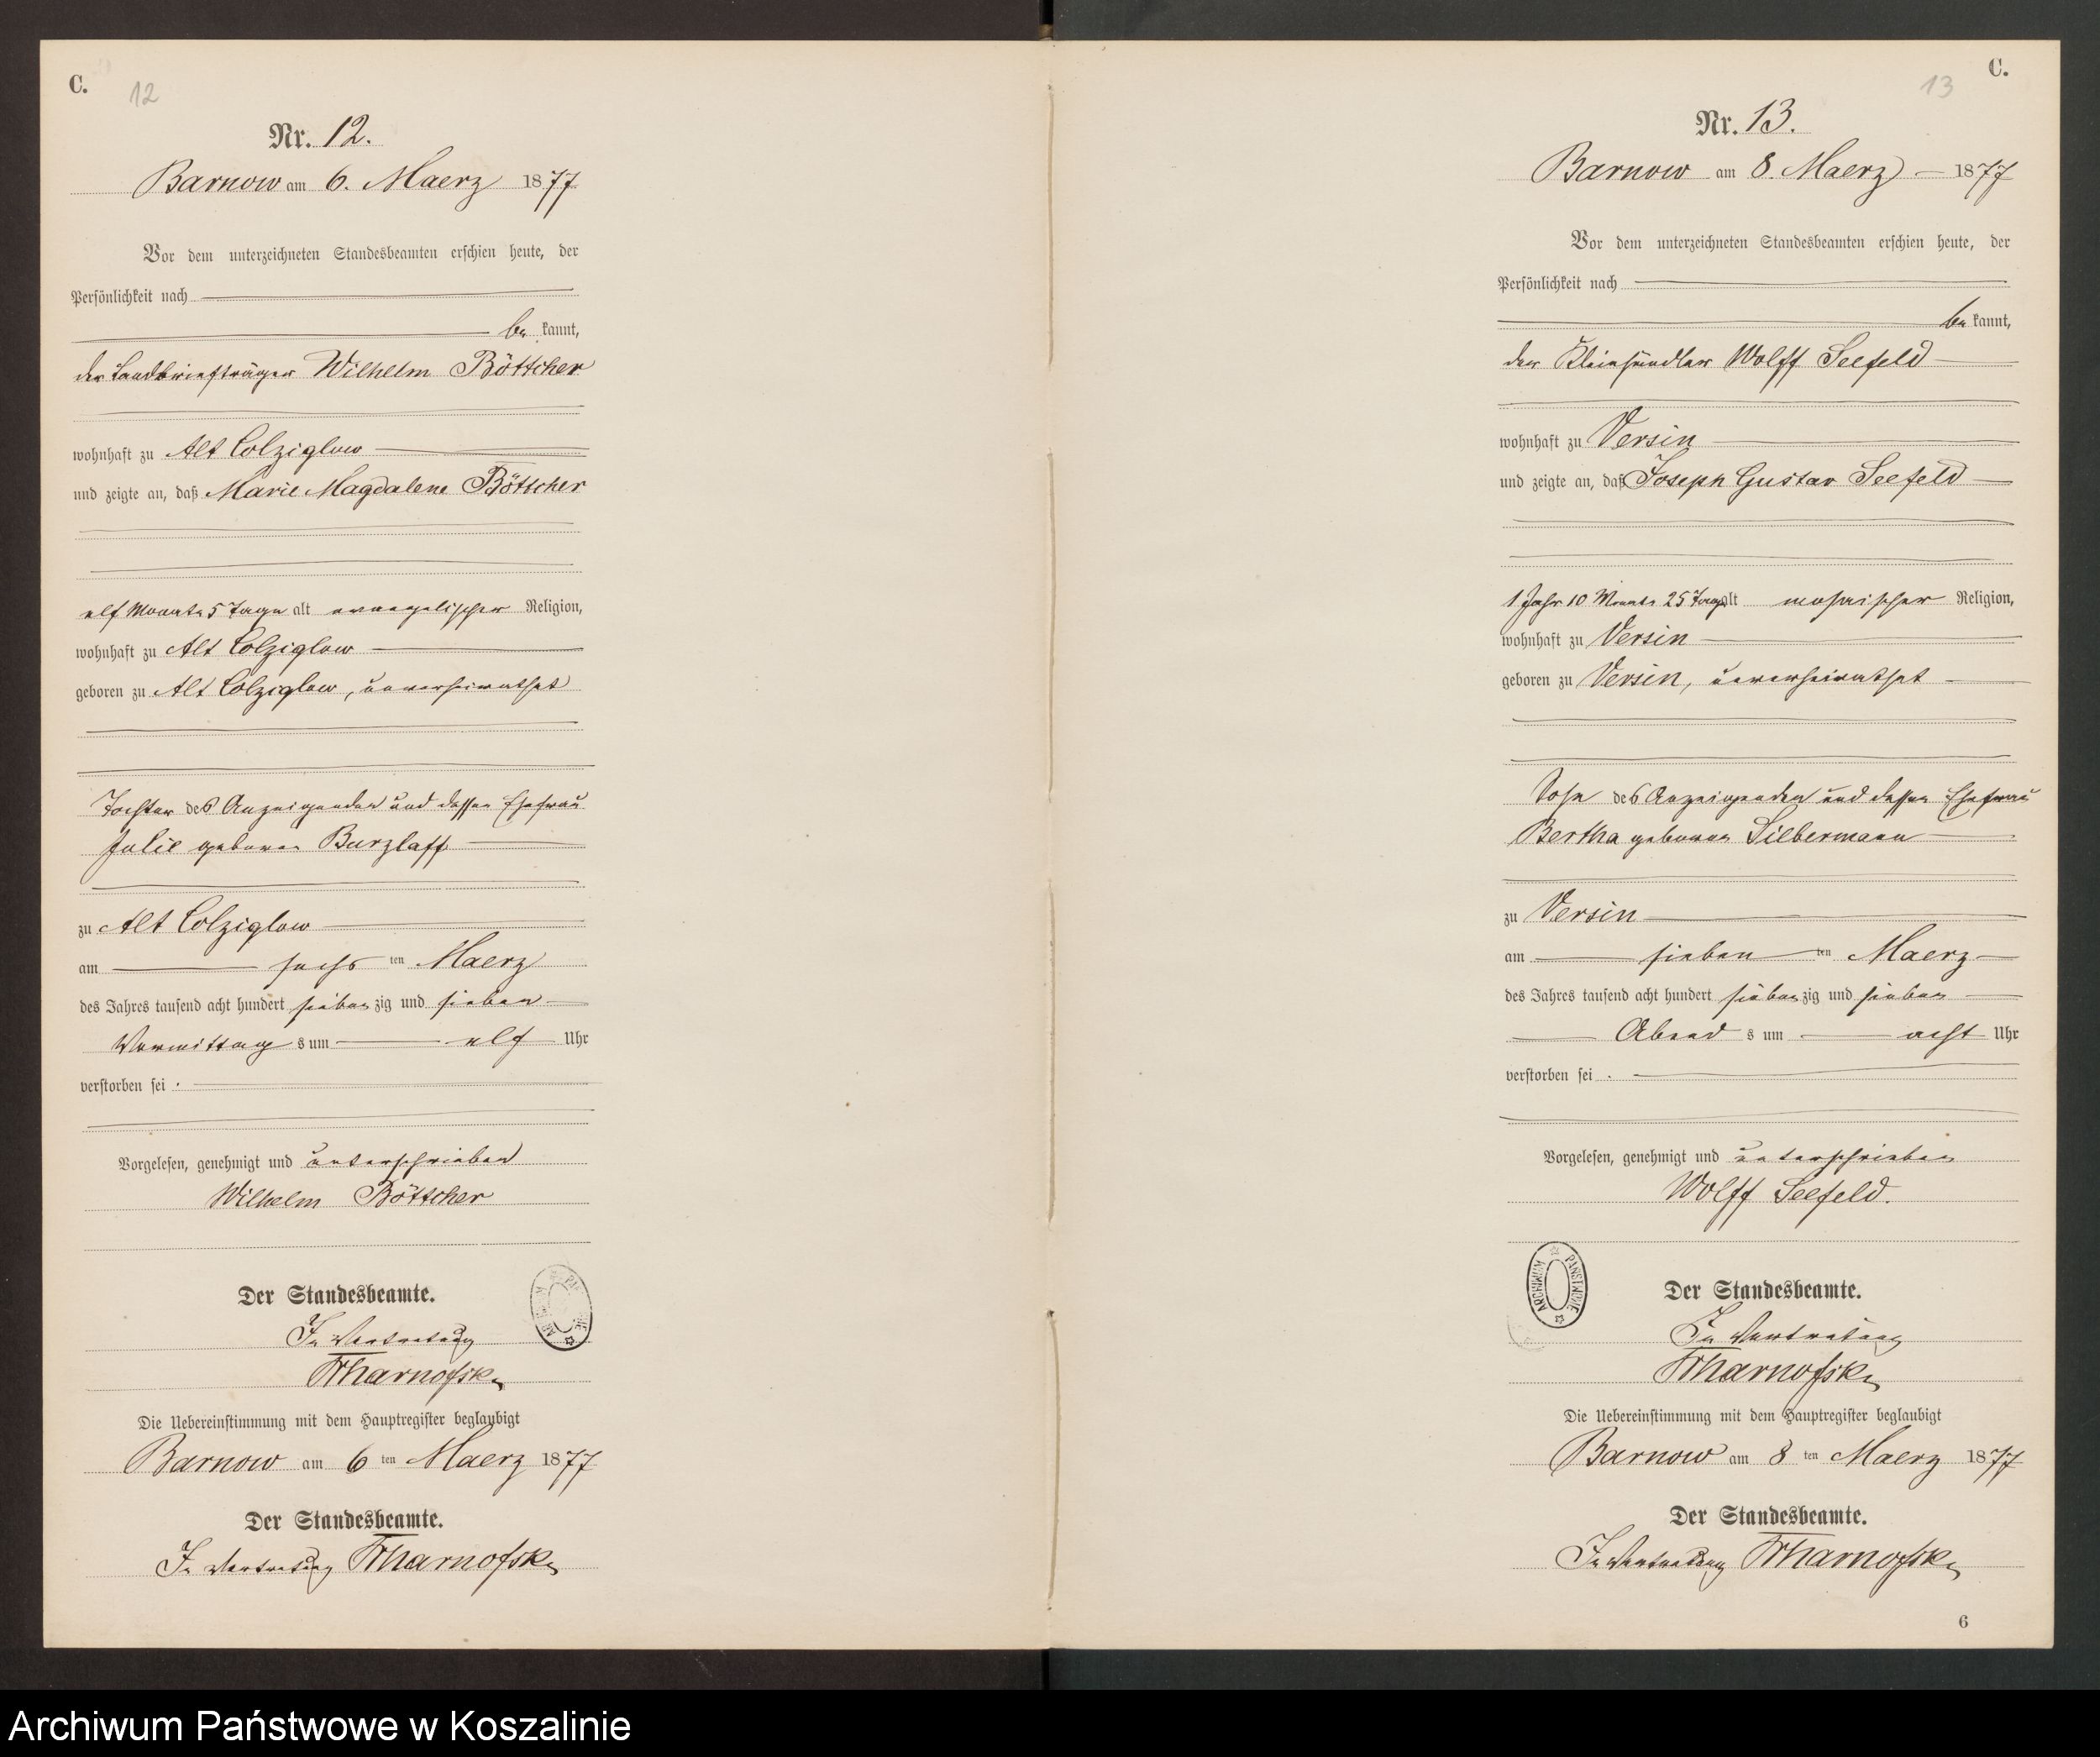 C. 12
Nr. 12.
Barnow am 6. Maerz 1877
Vor dem unterzeichneten Standesbeamten erschien heute, der
Persönlichkeit nach
be kannt,
der Landbriefträger Wilhelm Böttcher
wohnhaft zu Alt Colziglow
und zeigte an, daß Marie Magdalene Böttcher
elf Monate 5 Tage alt evangelischer Religion,
wohnhaft zu Alt Colziglow
geboren zu Alt Colziglow, unverheirathet
Tochter des Anzeigenden und dessen Ehefrau
Julie geboren Burzlaff
zu Alt Colziglow
am sechs ten Maerz
des Jahres tausend acht hundert sieben zig und sieben
Vormittag s um elf Uhr
verstorben sei .
Vorgelesen, genehmigt und unterschrieben
Wilhelm Böttcher
Der Standesbeamte.
In Vertretung
Die Uebereinstimmung mit dem Hauptregister beglaubigt
Barnow am 6 ten Maerz 1877
Der Standesbeamte.
In Vertretung
13 C.
Nr. 13.
Barnow am 8. Maerz 1877
Vor dem unterzeichneten Standesbeamten erschien heute, der
Persönlichkeit nach
be kannt,
der Kleinhändler Wolff Seefeld
wohnhaft zu Versin
und zeigte an, daß Joseph Gustav Seefeld
1 Jahr 10 Monate 25 Tage alt mosaischer Religion,
wohnhaft zu Versin
geboren zu Versin, unverheirathet
Sohn des Anzeigenden und dessen Ehefrau
Bertha geboren Silbermann
zu Versin
am sieben ten Maerz
des Jahres tausend acht hundert sieben zig und sieben
Abend s um acht Uhr
verstorben sei .
Vorgelesen, genehmigt und unterschrieben
Wolff Seefeld.
ARCHIWUM PAŃSTWOWE
Der Standesbeamte.
In Vertretung
Die Uebereinstimmung mit dem Hauptregister beglaubigt
Barnow am 8 ten Maerz 1877
Der Standesbeamte.
In Vertretung
6
Archiwum Państwowe w Koszalinie